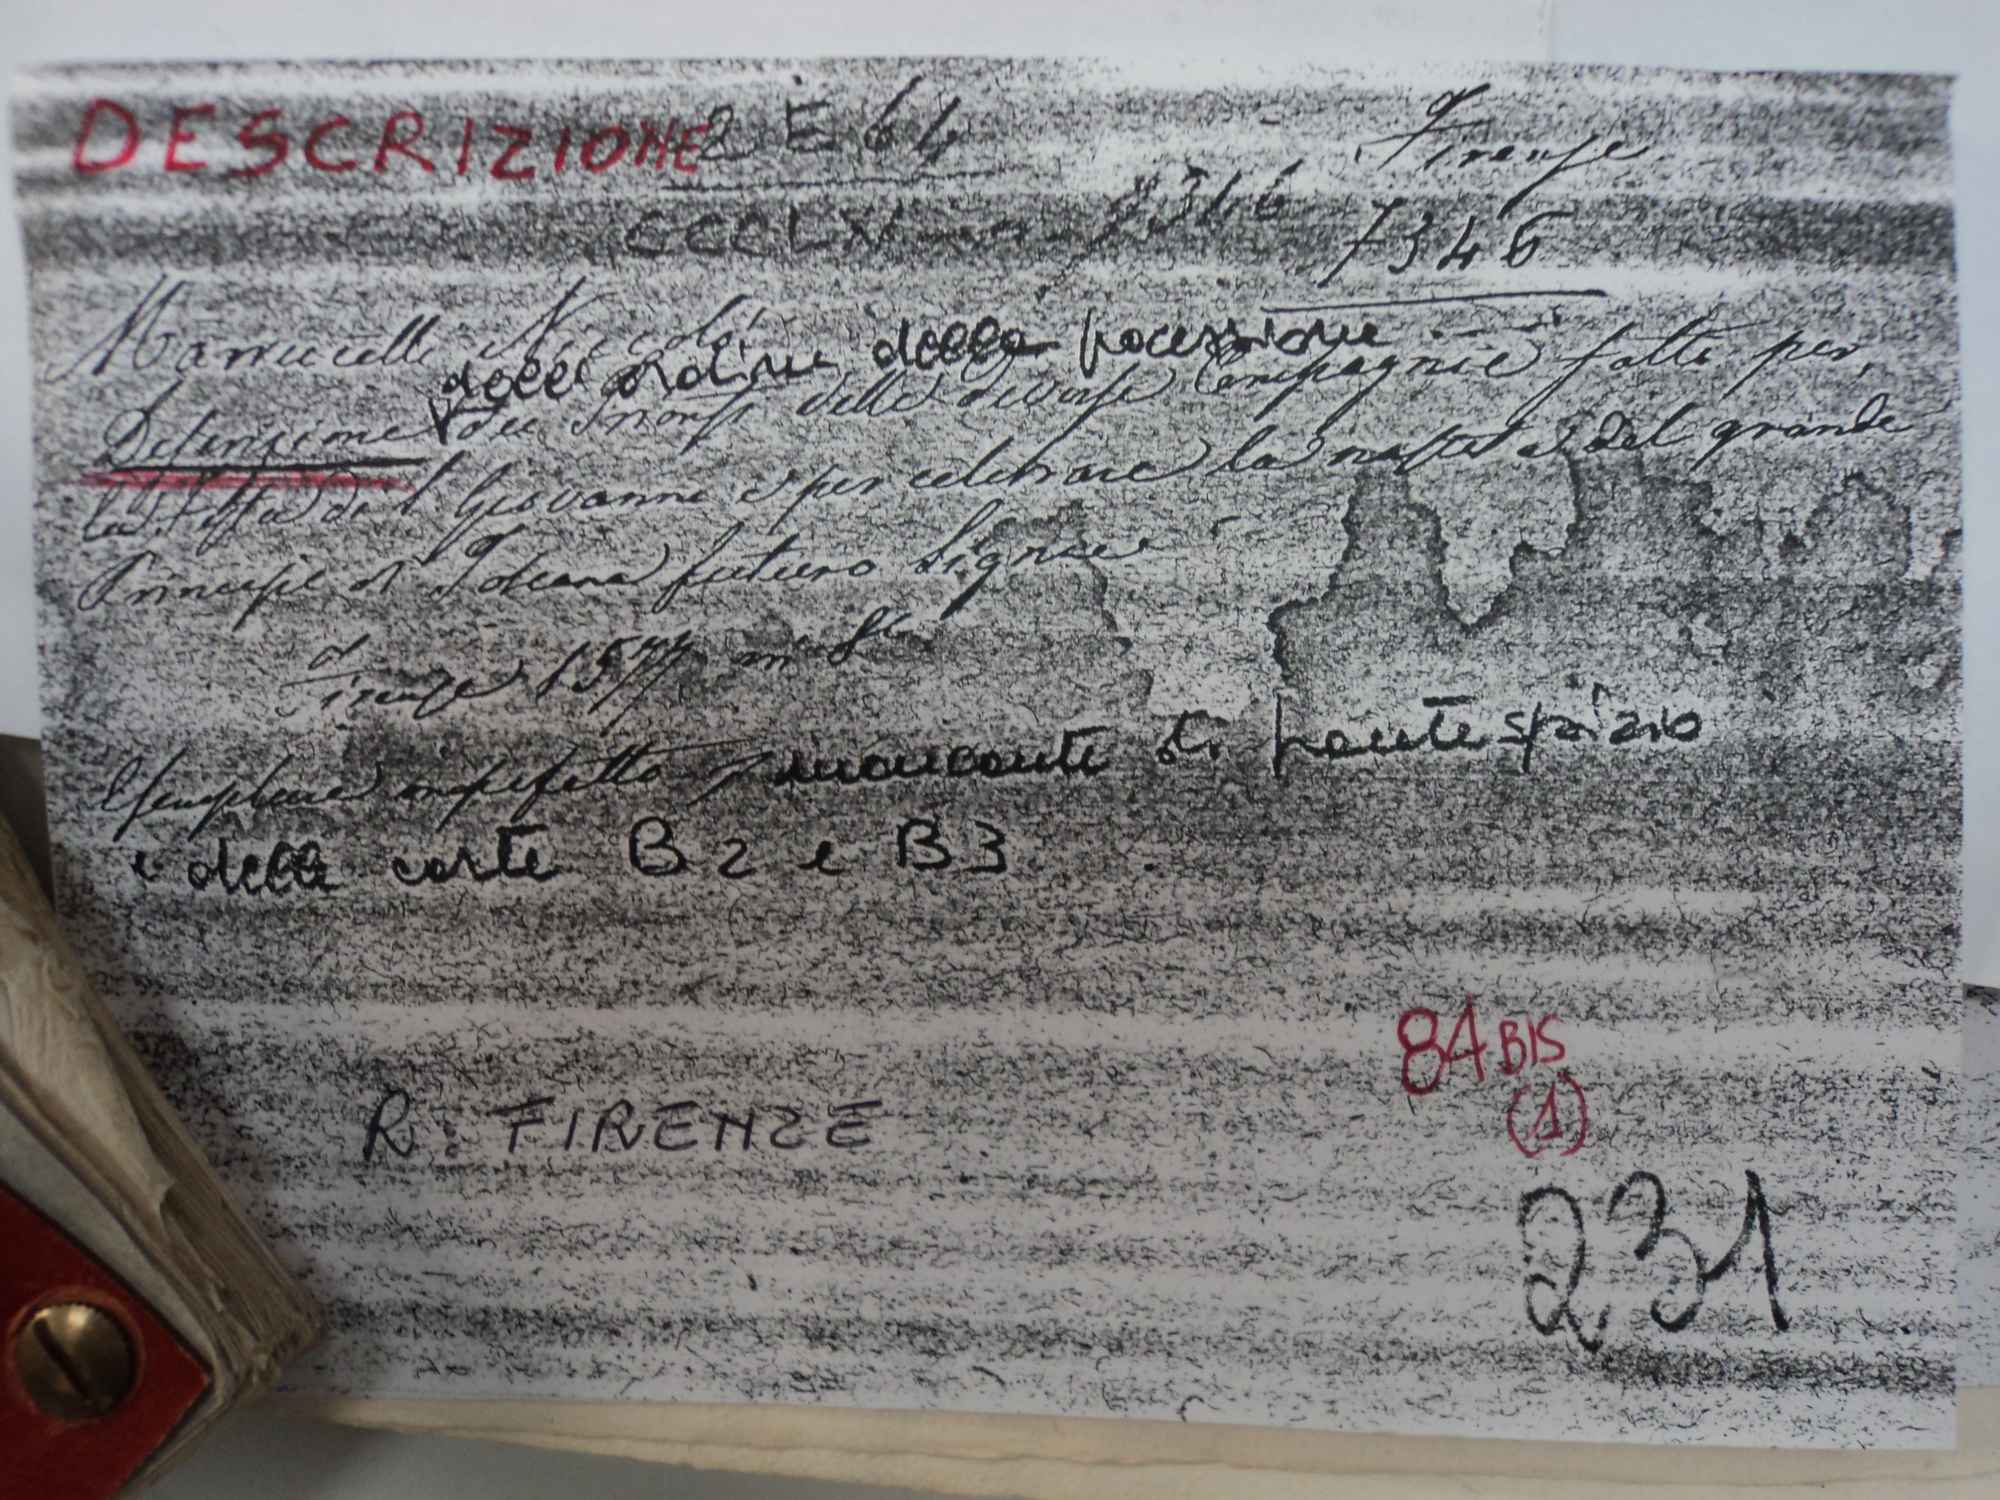 DESCRIZIONE 2 E 64
Firenze
CCCLXV 7346
7346
Mannucelli Niccolò
dell'ordine della processione
Descrizione dei Trionfi delle diverse Compagnie fatte per
la festa di S Giovanni e per celebrare la nascita del grande
Principe di Toscana futuro Signore
Firenze 1577 in 8°
Esemplare imperfetto, mancante di frontespizio
e delle carte B2 e B3
84 BIS
(1)
R. FIRENZE
231